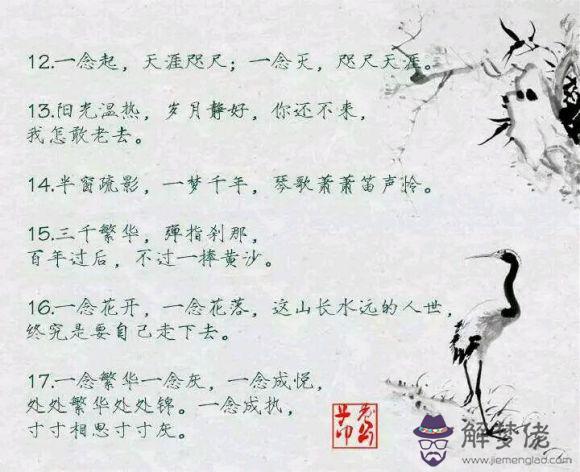 12.一念起，天涯咫尺；一念灭，咫尺天涯。
13.阳光温热，岁月静好，你还不来，
我怎敢老去。
14.半窗疏影，一梦千年，琴歌萧萧笛声怜。
15.三千繁华，弹指刹那，
百年过后，不过一捧黄沙。
16.一念花开，一念花落，这山长水远的人世，
终究是要自己走下去。
17.一念繁华一念灰，一念成悦，
处处繁华处处锦。一念成执，
寸寸相思寸寸灰。
解梦佬
www.jiemenglad.com